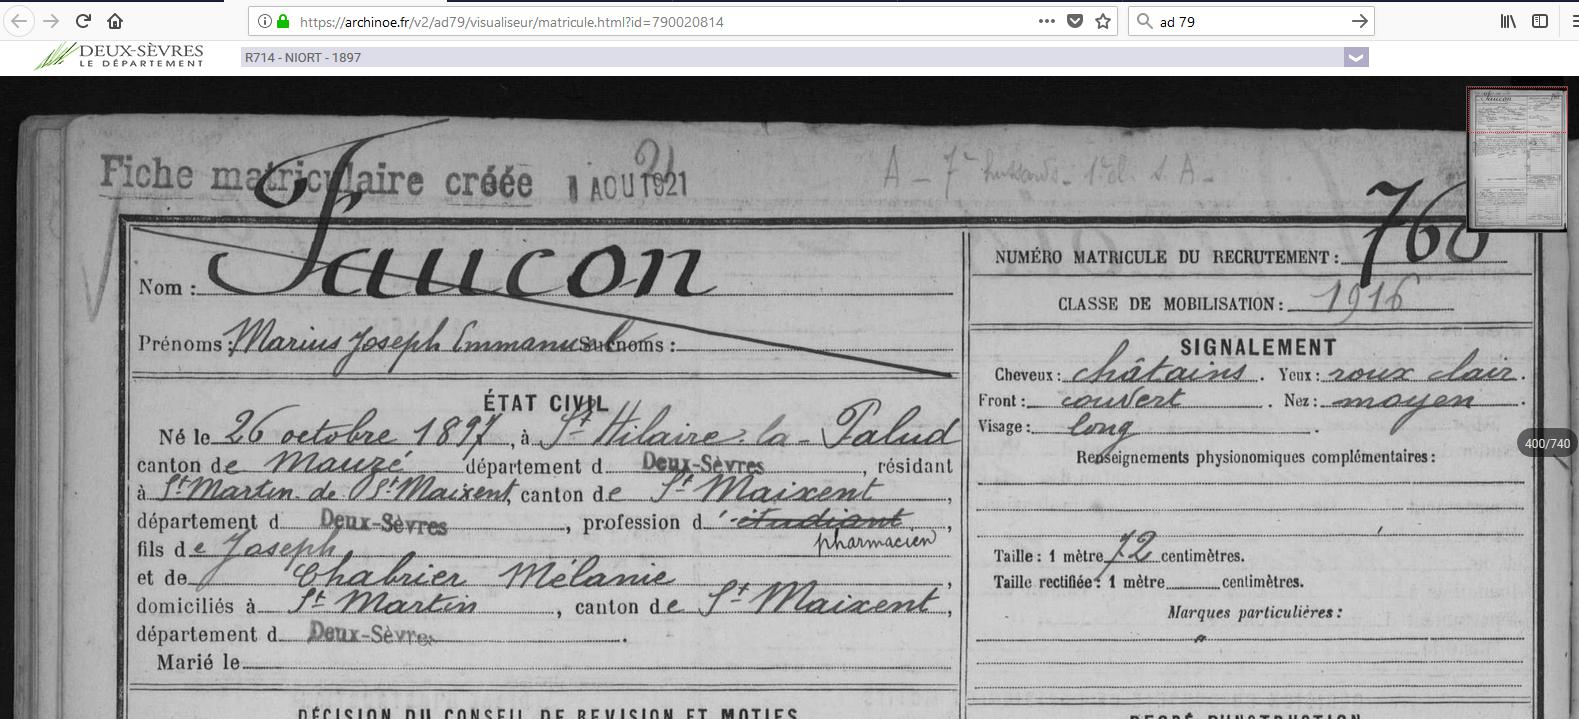 https://archinoe.fr/v2/ad79/visualiseur/matricule.html?id=790020814
ad 79
DEUX-SÈVRES
LE DÉPARTEMENT
R714 - NIORT - 1897
Fiche matriculaire créée AOU 1921
A - 7e hussards -
Nom : Faucon
Prénoms : Marius Joseph Emmanuel Surnoms :
ÉTAT CIVIL
Né le 26 octobre 1897, à St Hilaire-la-Palud
canton de Mauzé département d Deux-Sèvres, résidant
à St Martin de St Maixent, canton de St Maixent,
département d Deux-Sèvres, profession d'étudiant,
pharmacien
fils de Joseph
et de Chabrier Mélanie,
domiciliés à St Martin, canton de St Maixent,
département d Deux-Sèvres.
Marié le
DÉCISION DU CONSEIL DE REVISION ET MOTIFS
NUMÉRO MATRICULE DU RECRUTEMENT : 760
CLASSE DE MOBILISATION : 1916
SIGNALEMENT
Cheveux : châtains. Yeux : roux clair.
Front : couvert. Nez : moyen.
Visage : long.
Renseignements physionomiques complémentaires :
Taille : 1 mètre 72 centimètres.
Taille rectifiée : 1 mètre centimètres.
Marques particulières :
"
DEGRÉ D'INSTRUCTION
400/740